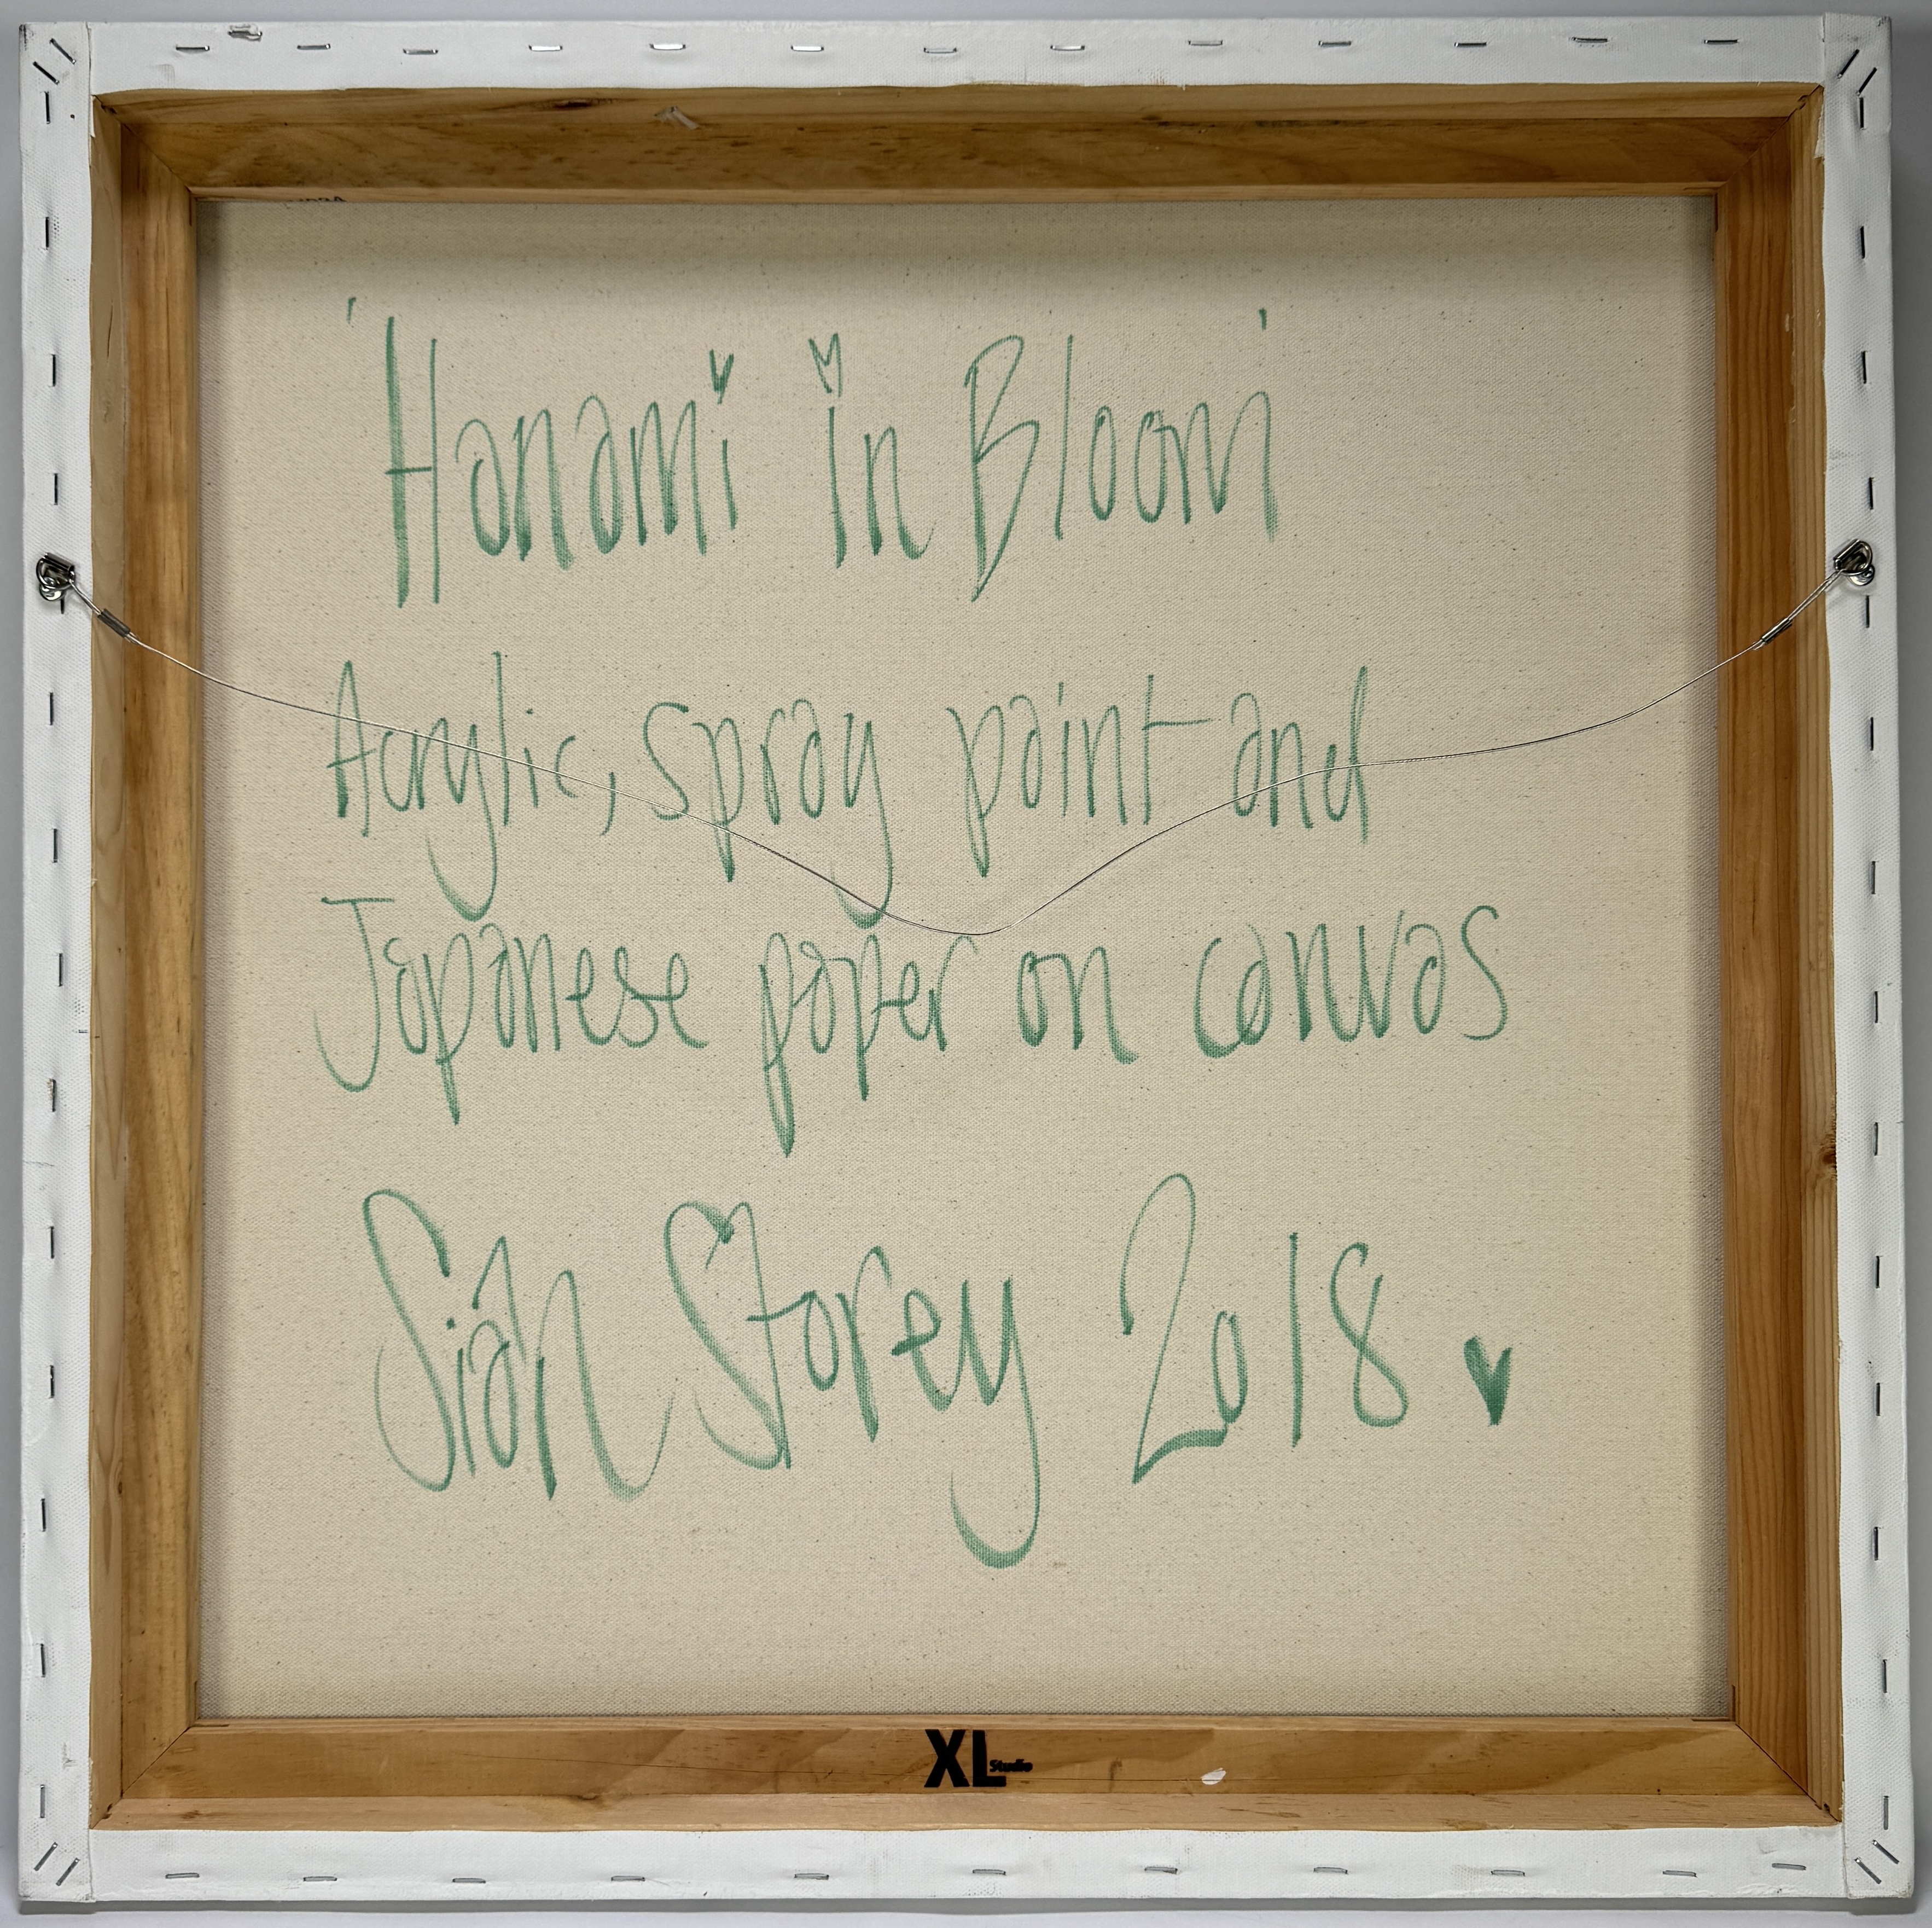 'Hanami in Bloom'
Acrylic, spray paint and
Japanese paper on canvas
Siân Storey 2018
XL Studio